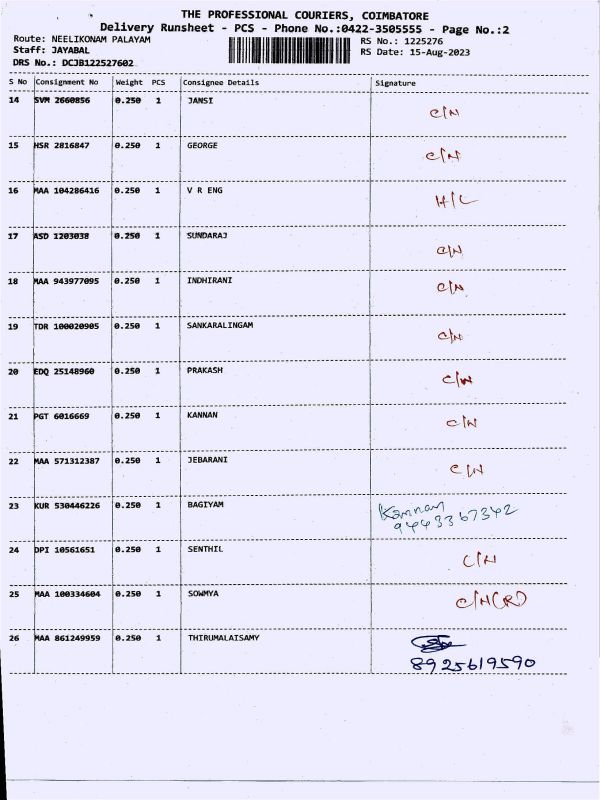 THE PROFESSIONAL COURIERS, COIMBATORE
Delivery Runsheet - PCS - Phone No.:0422-3505555 - Page No.:2
Route: NEELIKONAM PALAYAM RS No.: 1225276
Staff: JAYABAL RS Date: 15-Aug-2023
DRS No.: DCJB122527602
S No Consignment No Weight PCS Consignee Details Signature
14 SVM 2660856 0.250 1 JANSI C/N
15 HSR 2816847 0.250 1 GEORGE C/N
16 MAA 104286416 0.250 1 V R ENG H/L
17 ASD 1203038 0.250 1 SUNDARAJ C/N
18 MAA 943977095 0.250 1 INDHIRANI C/N
19 TDR 100020905 0.250 1 SANKARALINGAM C/N
20 EDQ 25148960 0.250 1 PRAKASH C/N
21 PGT 6016669 0.250 1 KANNAN C/N
22 MAA 571312387 0.250 1 JEBARANI C/N
23 KUR 530446226 0.250 1 BAGIYAM Kannan
9443367342
24 DPI 10561651 0.250 1 SENTHIL C/N
25 MAA 100334604 0.250 1 SOWMYA C/N(R)
26 MAA 861249959 0.250 1 THIRUMALAISAMY
8925619590